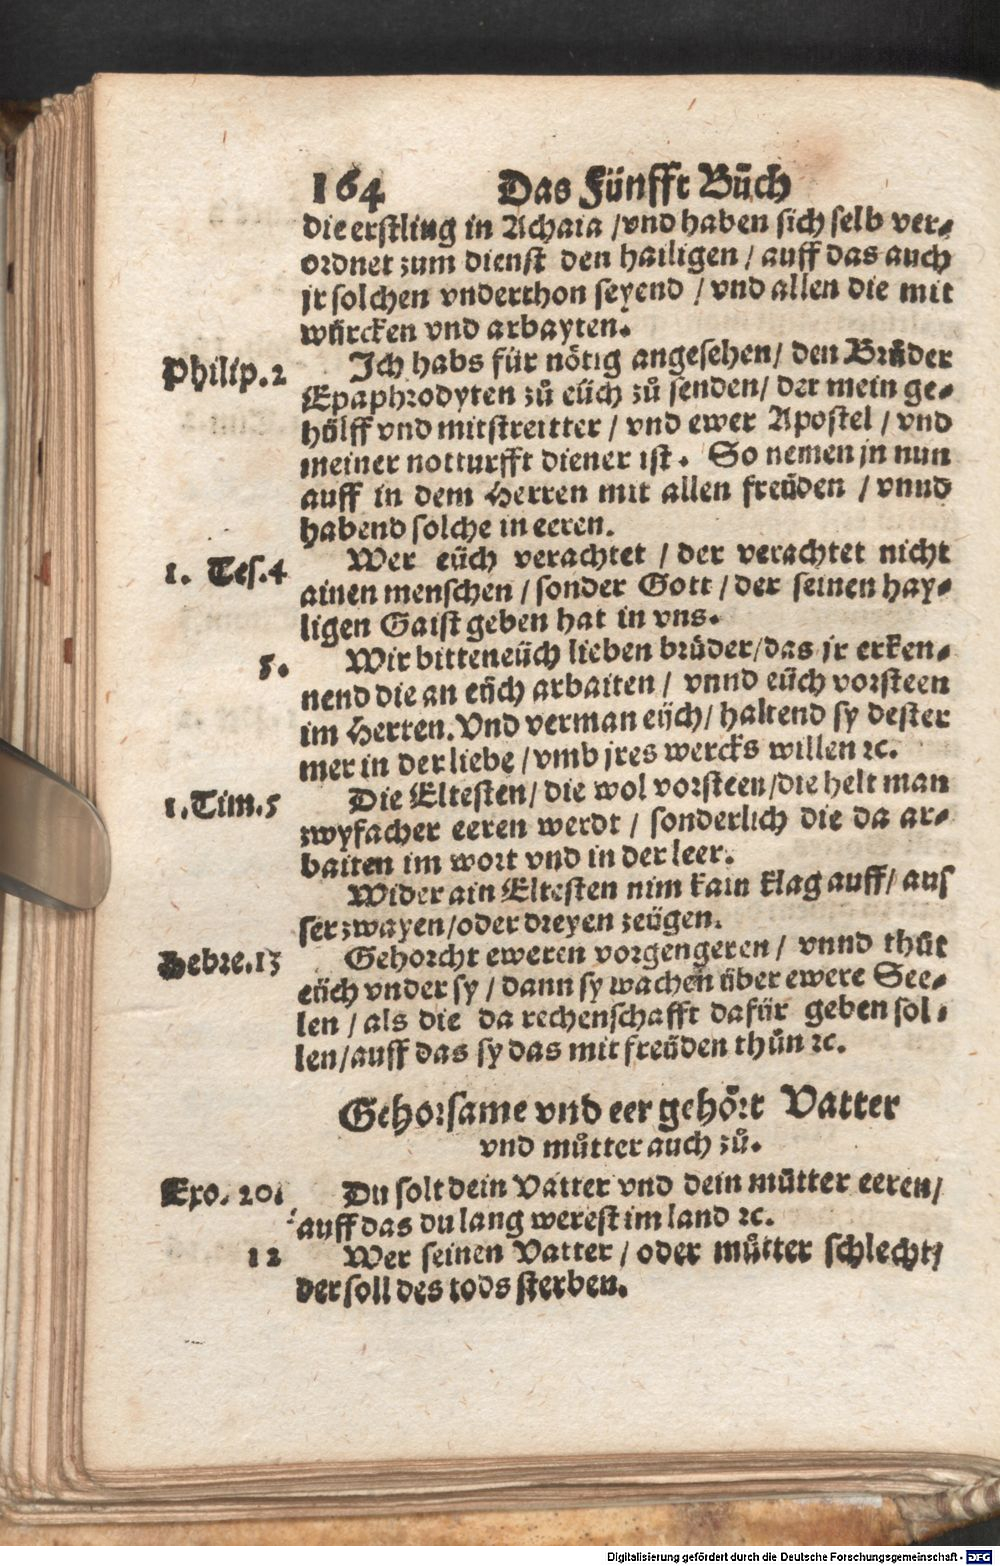 164 Das Fünfft Bůch
die erstling in Achaia / vnd haben sich selb ver⸗
ordnet zum dienst den hailigen / auff das auch
jr solchen vnderthon seyend / vnd allen die mit
würcken vnd arbayten.
Philip.2 Ich habs für nötig angesehen / den Brůder
Epaphrodyten zů eüch zů senden / der mein ge⸗
hülff vnd mitstreitter / vnd ewer Apostel / vnd
meiner notturfft diener ist. So nemen jn nun
auff in dem Herren mit allen freüden / vnnd
habend solche in eeren.
1. Tes.4 Wer eüch verachtet / der verachtet nicht
ainen menschen / sonder Gott / der seinen hay⸗
ligen Gaist geben hat in vns.
5. Wir bitten eüch lieben brůder / das jr erken⸗
nend die an eüch arbaiten / vnnd eüch vorsteen
im Herren. Vnd verman eüch / haltend sy dester
mer in der liebe / vmb jres wercks willen ꝛc.
1.Tim.5 Die Eltesten / die wol vorsteen / die helt man
zwyfacher eeren werdt / sonderlich die da ar⸗
baiten im wort vnd in der leer.
Wider ain Eltesten nim kain klag auff / aus
ser zwayen / oder dreyen zeügen.
Hebre.13 Gehorcht eweren vorgengeren / vnnd thůt
eüch vnder sy / dann sy wachen über ewere See⸗
len / als die da rechenschafft dafür geben sol⸗
len / auff das sy das mit freüden thůn ꝛc.
Gehorsame vnd eer gehört Vatter
vnd můtter auch zů.
Exo. 20. Du solt dein Vatter vnd dein můtter eeren /
auff das du lang werest im land ꝛc.
12 Wer seinen Vatter / oder můtter schlecht /
der soll des tods sterben.
Digitalisierung gefördert durch die Deutsche Forschungsgemeinschaft - DFG